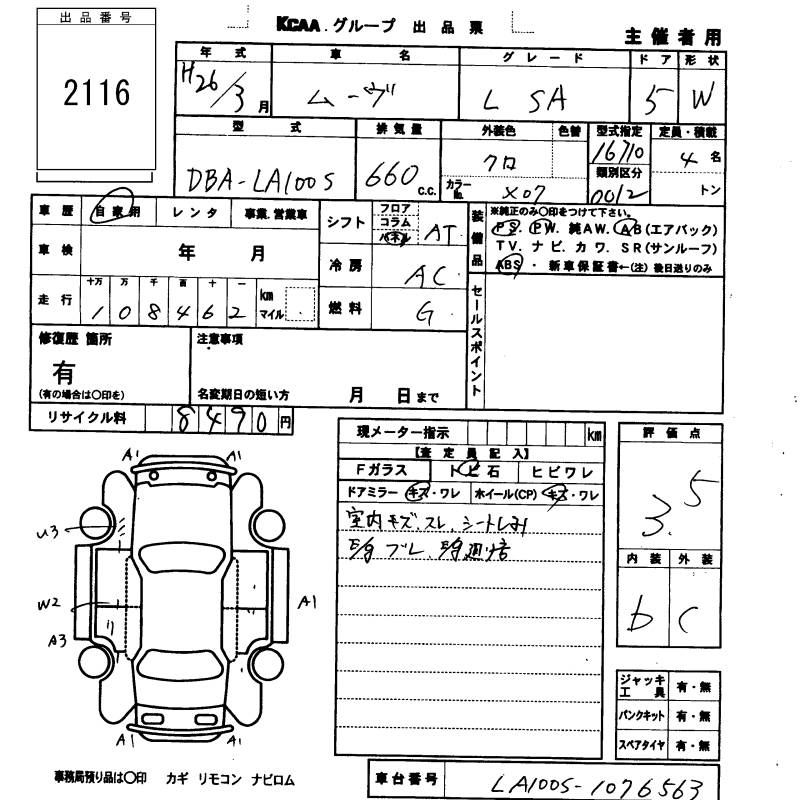 出品番号
2116
KCAA.グループ 出品票
主催者用
年式 車名 グレード ドア 形状
H26/3月 ムーヴ L SA 5 W
型式 排気量 外装色 色替 型式指定 定員・積載
DBA-LA100S 660 c.c. クロ 16710 4名
カラーNo. X07 類別区分 0012 トン
車歴 自家用 レンタ 事業.営業車
シフト フロア コラム パネル AT
装備品 ※純正のみ〇印をつけて下さい。
PS. PW. 純AW. AB(エアバック)
TV. ナビ. カワ. SR(サンルーフ)
ABS・新車保証書←(注)後日送りのみ
車検 年 月
冷房 AC
走行 十万 万 千 百 十 一 km マイル
1 0 8 4 6 2
燃料 G
セールスポイント
修復歴 箇所
有
(有の場合は〇印を)
注意事項
名変期日の短い方 月 日まで
リサイクル料 8490円
現メーター指示 km
【査定員記入】
Fガラス トビ石 ヒビワレ
ドアミラー キズ・ワレ ホイール(CP) キズ・ワレ
室内キズ、スレ、シートしみ
E/gブレ、E/g過音
評価点
3.5
内装 外装
b C
A1 A1
U3
W2
A1
A3
A1 A1
ジャッキ 工具 有・無
パンクキット 有・無
スペアタイヤ 有・無
事務局預り品は〇印 カギ リモコン ナビロム
車台番号 LA100S-1076563